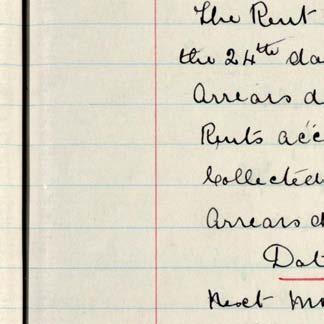 The Rent
the 24th da
Arrears d
Rents acc
Collected
Arrears d
Dat
Next M